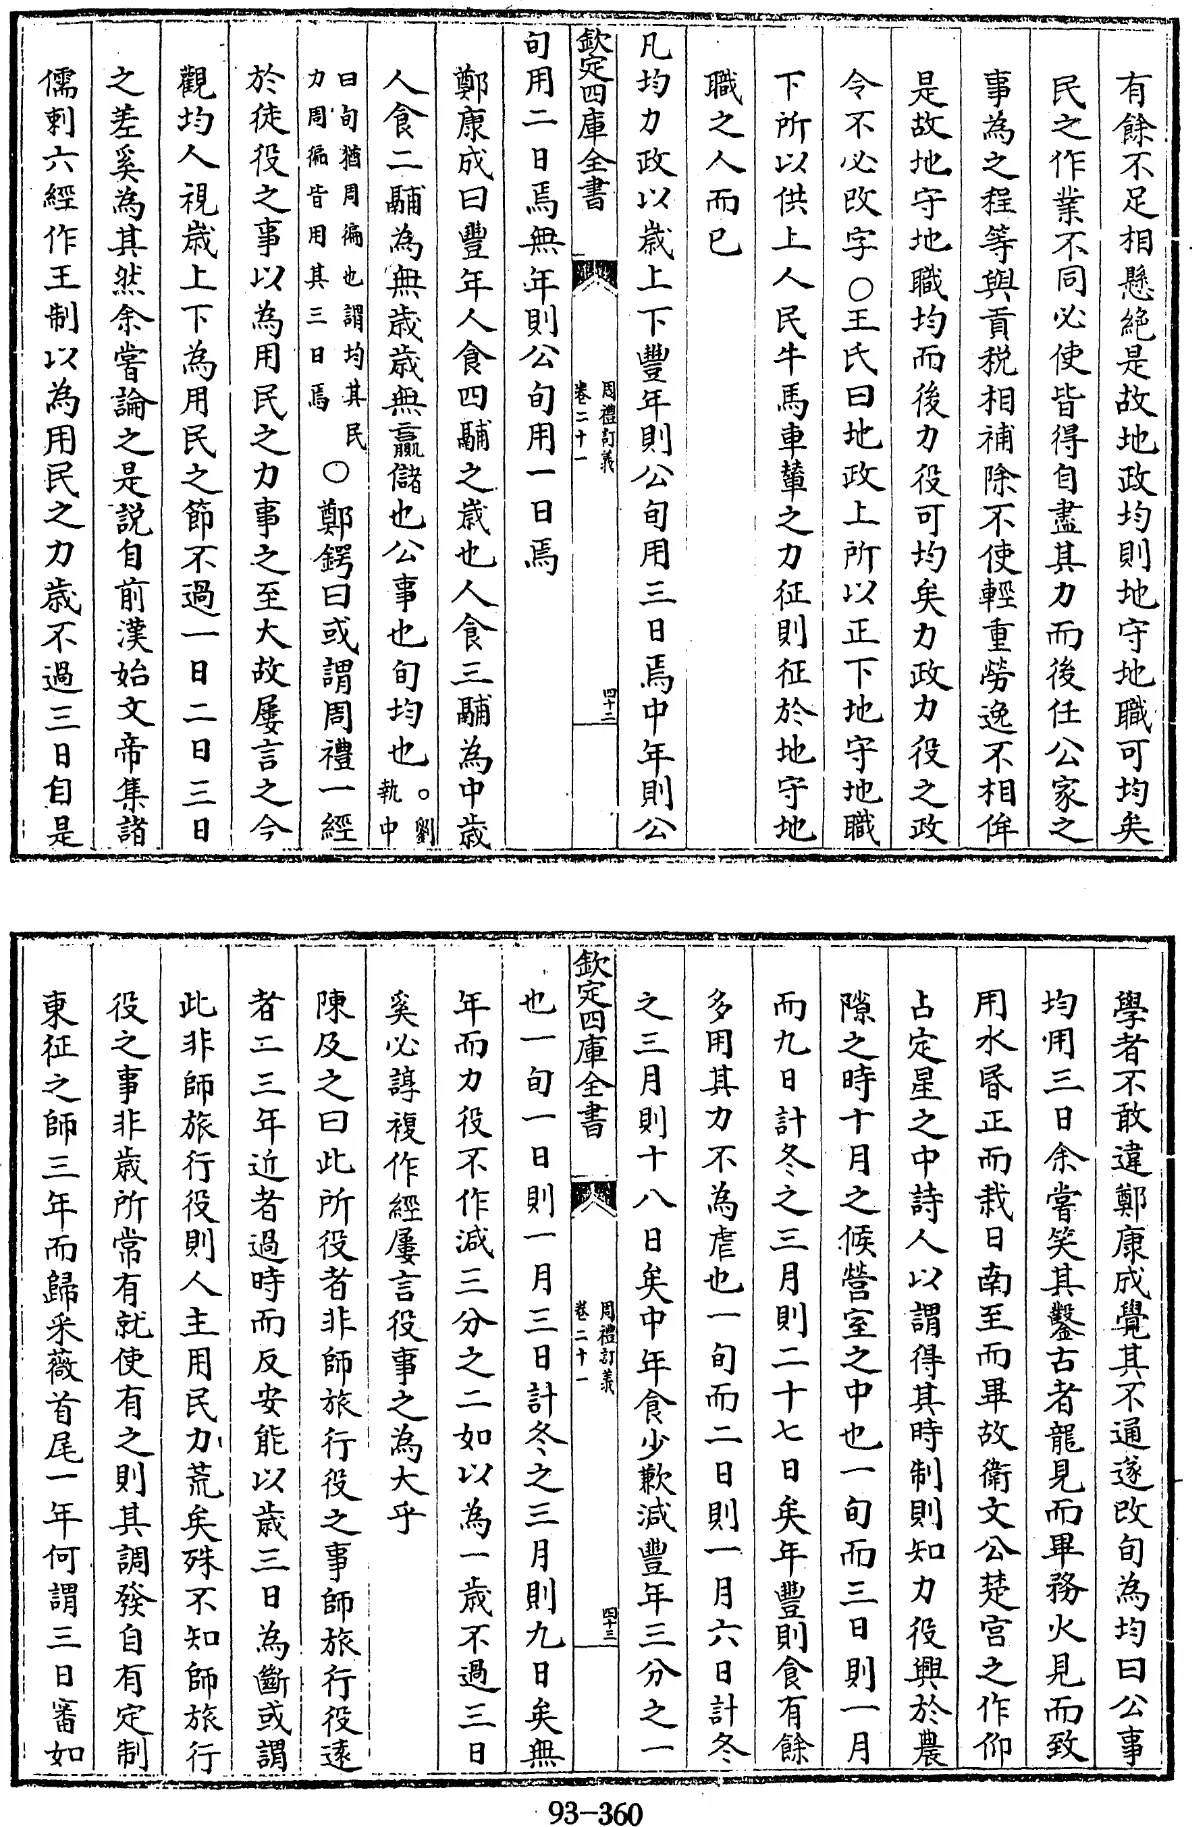 有餘不足相懸絶是故地政均則地守地職可均矣
民之作業不同必使皆得自盡其力而後任公家之
事為之程等與貢税相補除不使輕重勞逸不相侔
是故地守地職均而後力役可均矣力政力役之政
令不必改字○王氏曰地政上所以正下地守地職
下所以供上人民牛馬車輦之力征則征於地守地
職之人而已
凡均力政以歳上下豐年則公旬用三日焉中年則公
欽定四庫全書
周禮訂義
卷二十一
四十二
旬用二日焉無年則公旬用一日焉
鄭康成曰豐年人食四鬴之歳也人食三鬴為中歳
人食二鬴為無歳歳無贏儲也公事也旬均也○劉執中
曰旬猶周徧也謂均其民力周徧皆用其三日焉○鄭鍔曰或謂周禮一經
於徒役之事以為用民之力事之至大故屢言之今
觀均人視歳上下為用民之節不過一日二日三日
之差奚為其然余嘗論之是説自前漢始文帝集諸
儒刺六經作王制以為用民之力歳不過三日自是
學者不敢違鄭康成覺其不通遂改旬為均曰公事
均用三日余嘗笑其鑿古者龍見而畢務火見而致
用水昏正而栽日南至而畢故衛文公楚宮之作仰
占定星之中詩人以謂得其時制則知力役興於農
隙之時十月之候營室之中也一旬而三日則一月
而九日計冬之三月則二十七日矣年豐則食有餘
多用其力不為虐也一旬而二日則一月六日計冬
之三月則十八日矣中年食少歉減豐年三分之一
欽定四庫全書
周禮訂義
卷二十一
四十三
也一旬一日則一月三日計冬之三月則九日矣無
年而力役不作減三分之二如以為一歳不過三日
奚必諄複作經屢言役事之為大乎
陳及之曰此所役者非師旅行役之事師旅行役遠
者二三年近者過時而反安能以歳三日為斷或謂
此非師旅行役則人主用民力荒矣殊不知師旅行
役之事非歳所常有就使有之則其調發自有定制
東征之師三年而歸采薇首尾一年何謂三日審如
93-360